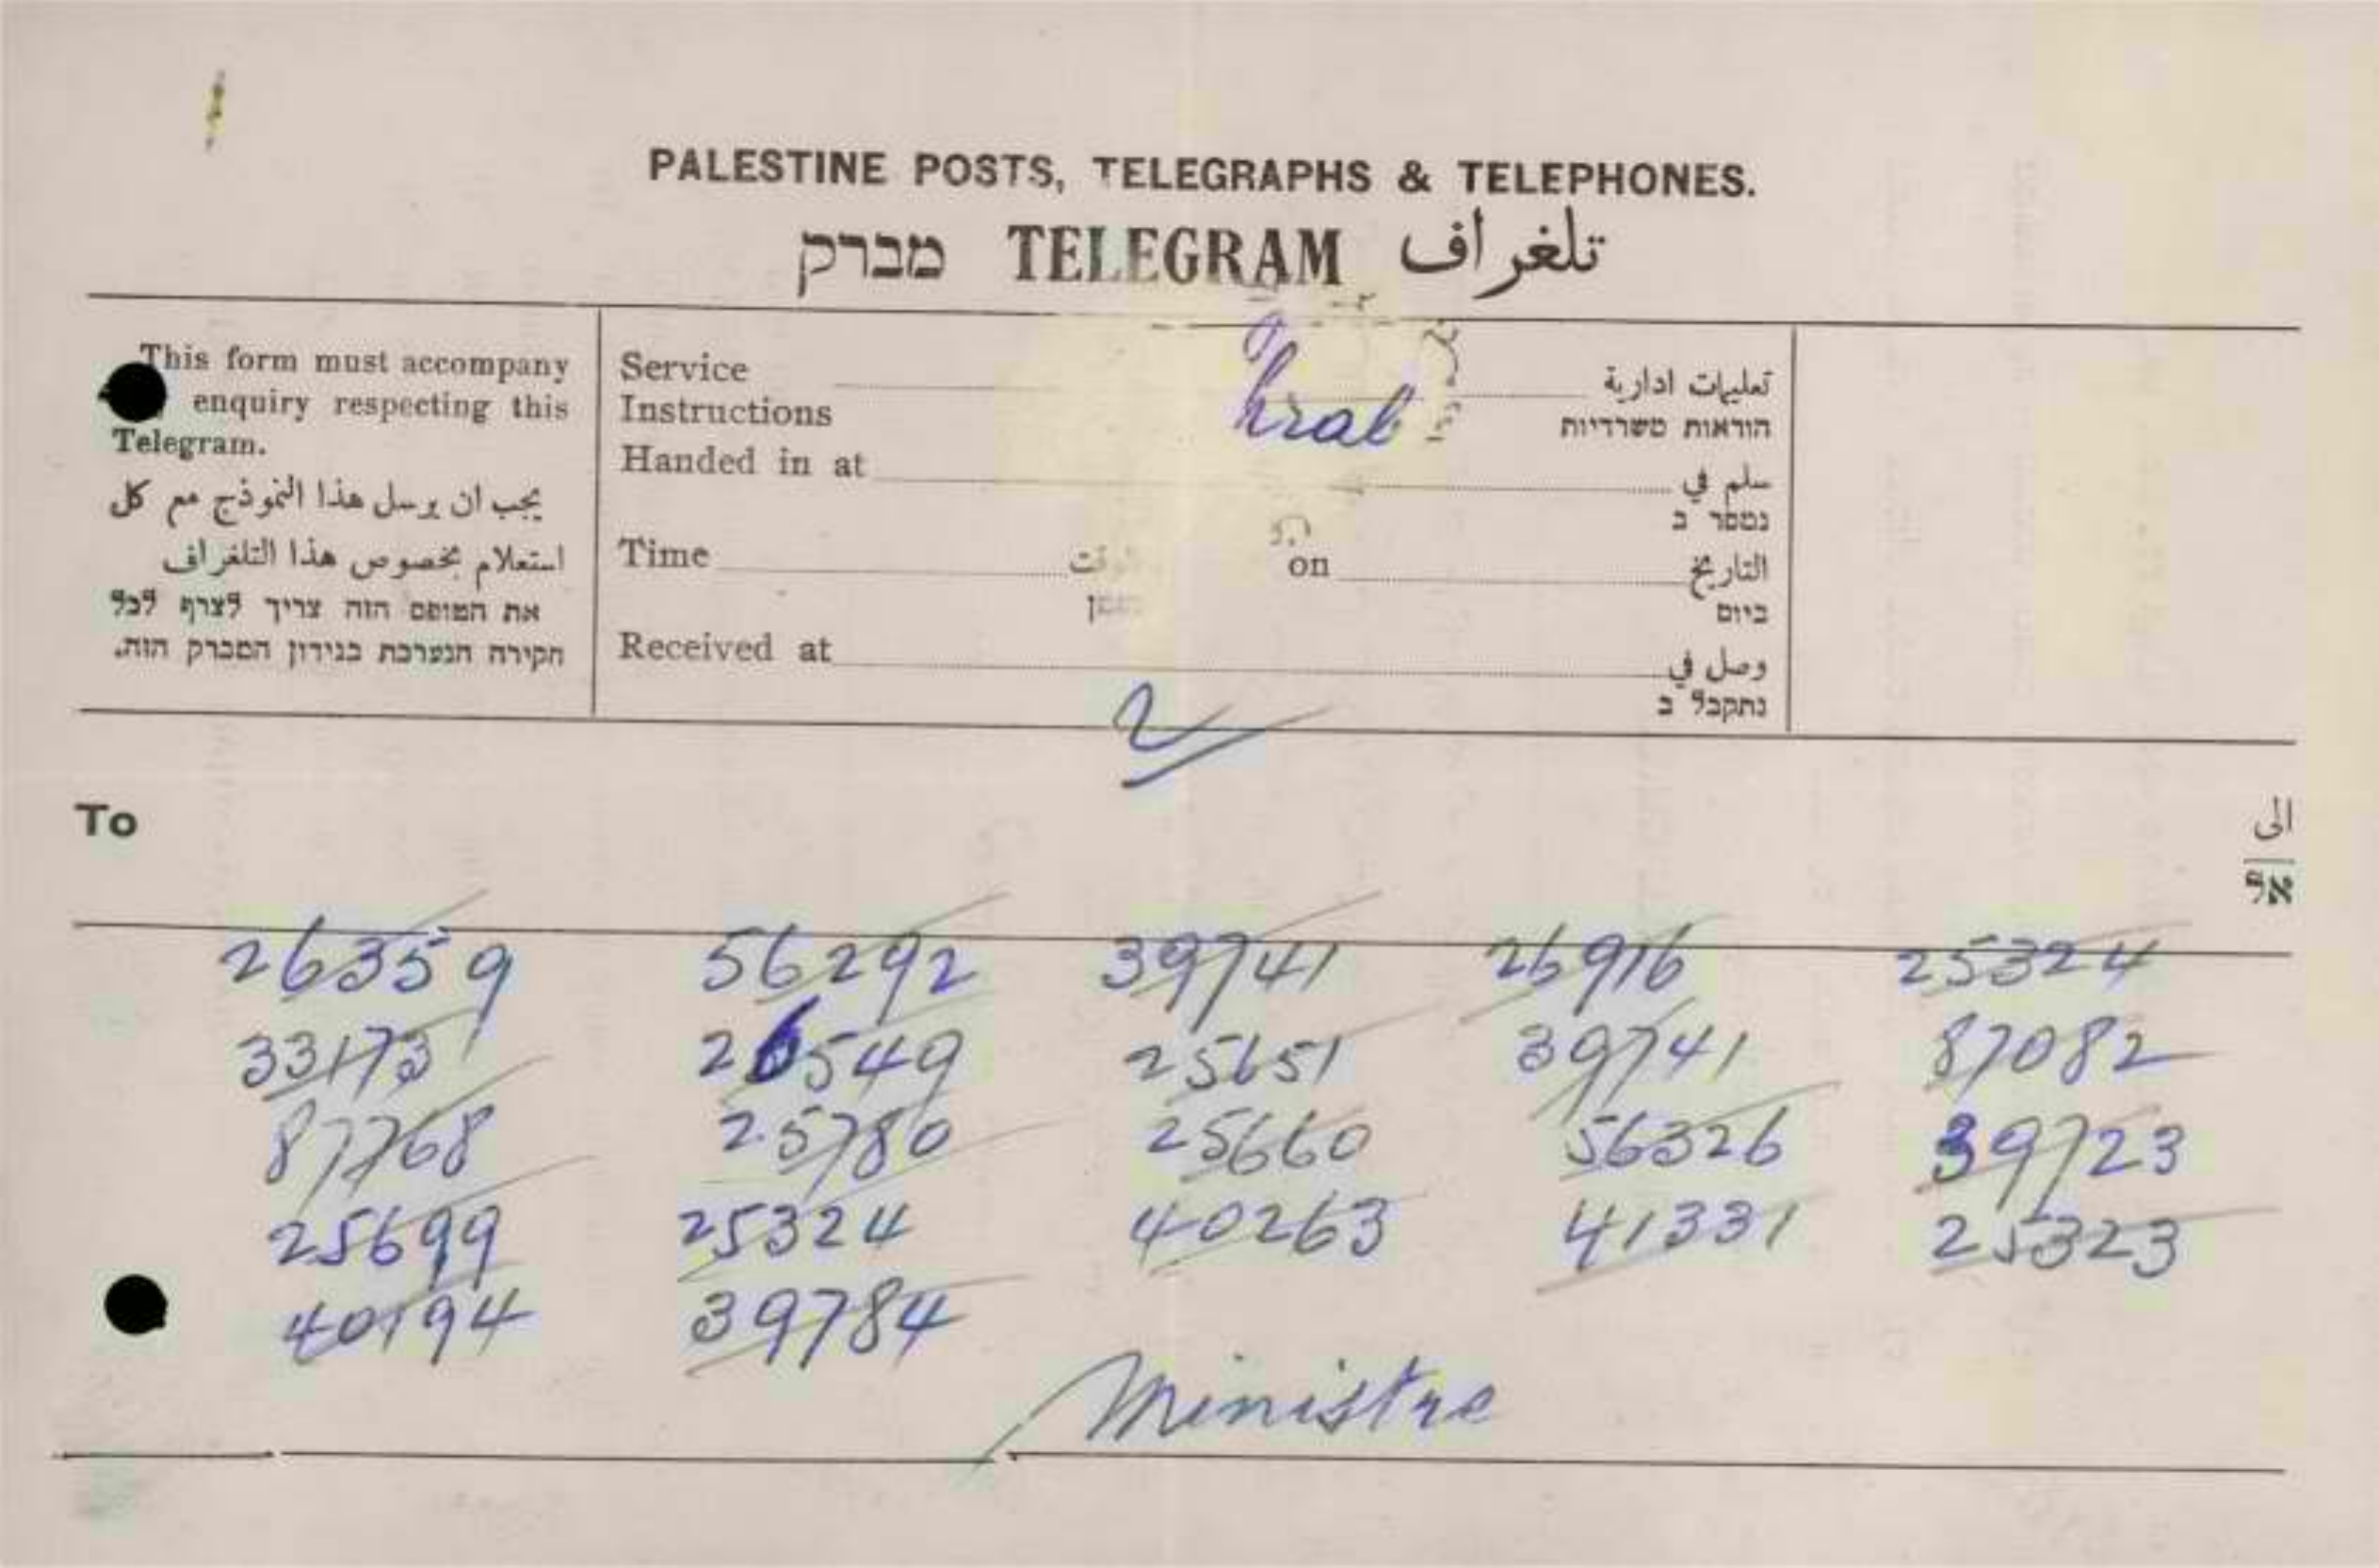 PALESTINE POSTS, TELEGRAPHS & TELEPHONES.
מברק TELEGRAM تلغراف
This form must accompany
enquiry respecting this
Telegram.
يجب ان يرسل هذا النموذج مع كل
استعلام بخصوص هذا التلغراف
את הטופס הזה צריך לצרף לכל
חקירה הנערכת בנידון המברק הזה.
Service تعليمات ادارية
Instructions הוראות משרדיות
Handed in at سلم في
נמסר ב
Time الوقت on التاريخ
ביום
Received at وصل في
נתקבל ב
2
To الى
אל
26359 56292 39741 26916 25324
33173 26549 25651 39741 87082
87768 25780 25660 56326 39723
25699 25324 40263 41331 25323
40194 39784
Ministre